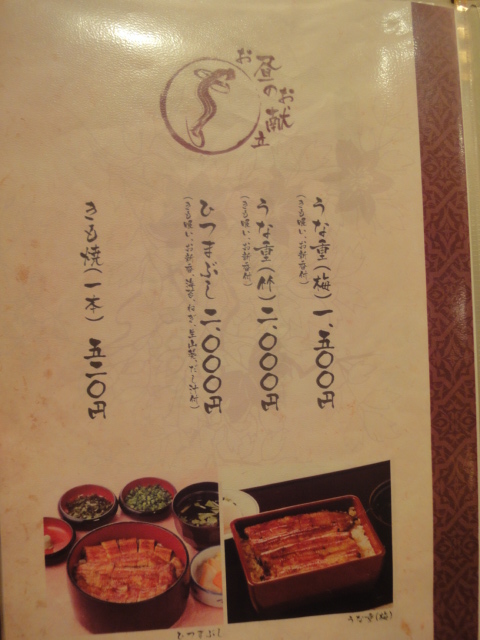 お昼のお献立
うな重(梅) 一、五〇〇円
(きも吸い、お新香付)
うな重(竹) 二、〇〇〇円
(きも吸い、お新香付)
ひつまぶし 二、〇〇〇円
(きも吸い、お新香、海苔、ねぎ、生山葵、だし汁付)
きも焼(一本) 五二〇円
ひつまぶし
うな重(梅)